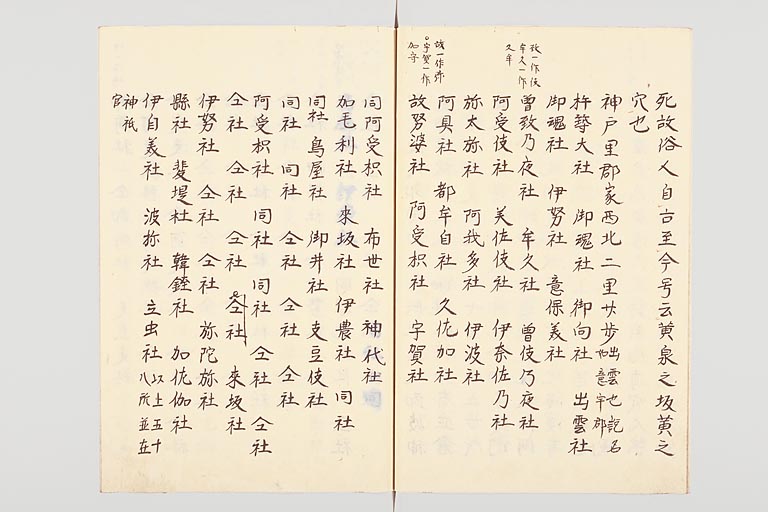 死故俗人自古至今号云黄泉之坂黄之
穴也
神戸里郡家西北二里廿歩出雲也説名如意宇郡
杵築大社 御魂社 御向社 出雲社
御魂社 伊努社 意保美社
曽致乃夜社 牟久社 曽伎乃夜社
阿受伎社 美佐伎社 伊奈佐乃社
弥太弥社 阿我多社 伊波社
阿具社 都牟自社 久佐加社
故努婆社 阿受枳社 宇賀社
故一作伎
牟久一作
久牟
故一作弥
宇賀一作
加守
同阿受枳社 布世社 神代社
加毛利社 來坂社 伊農社 同社
同社 鳥屋社 御井社 支豆伎社
同社 同社 仝社 仝社 仝社
阿受枳社 同社 同社 仝社 仝社
仝社 仝社 仝社 仝社 來坂社
伊努社 仝社 仝社 弥陀弥社
縣社 斐堤社 韓銍社 加佐伽社
伊自美社 波弥社 立虫社 以上五十八所並在
神祇
官